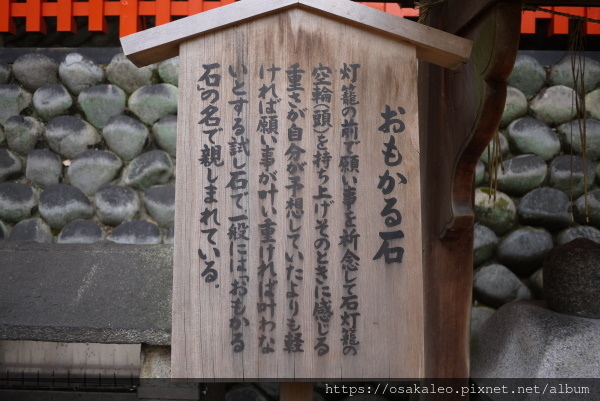 おもかる石
灯籠の前で願い事を祈念して石灯籠の
空輪(頭)を持ち上げそのときに感じる
重さが自分が予想していたよりも軽
ければ願い事が叶い重ければ叶わな
いとする試し石で一般には「おもかる
石」の名で親しまれている.
https://osakaleo.pixnet.net/album